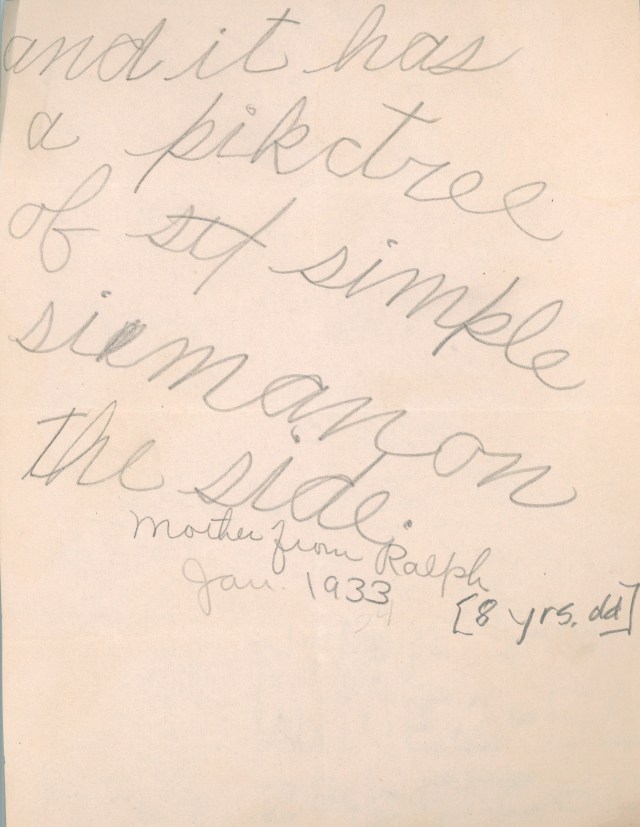 and it has
a pikctree
of sit simple
sieman on
the side.
Mother from Ralph
Jan. 1933
24
[8 yrs. old]